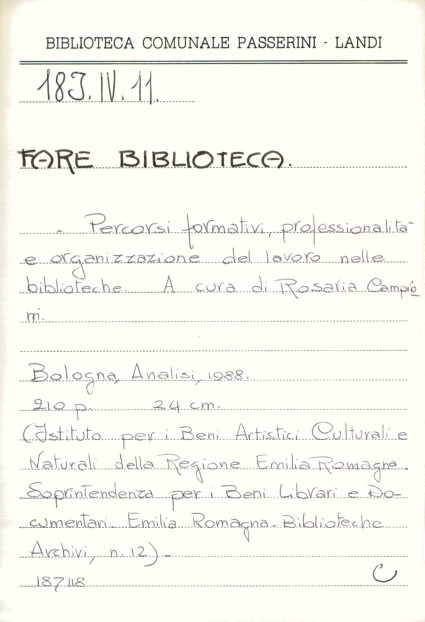 BIBLIOTECA COMUNALE PASSERINI - LANDI
18J.IV.11.
FARE BIBLIOTECA.
- Percorsi formativi, professionalità
e organizzazione del lavoro nelle
biblioteche. A cura di Rosaria Campio
ni.
Bologna, Analisi, 1988.
210 p. 24 cm.
(Istituto per i Beni Artistici Culturali e
Naturali della Regione Emilia Romagna.
Soprintendenza per i Beni Librari e Do-
cumentari. Emilia Romagna. Biblioteche
Archivi, n. 12) -
187118 C